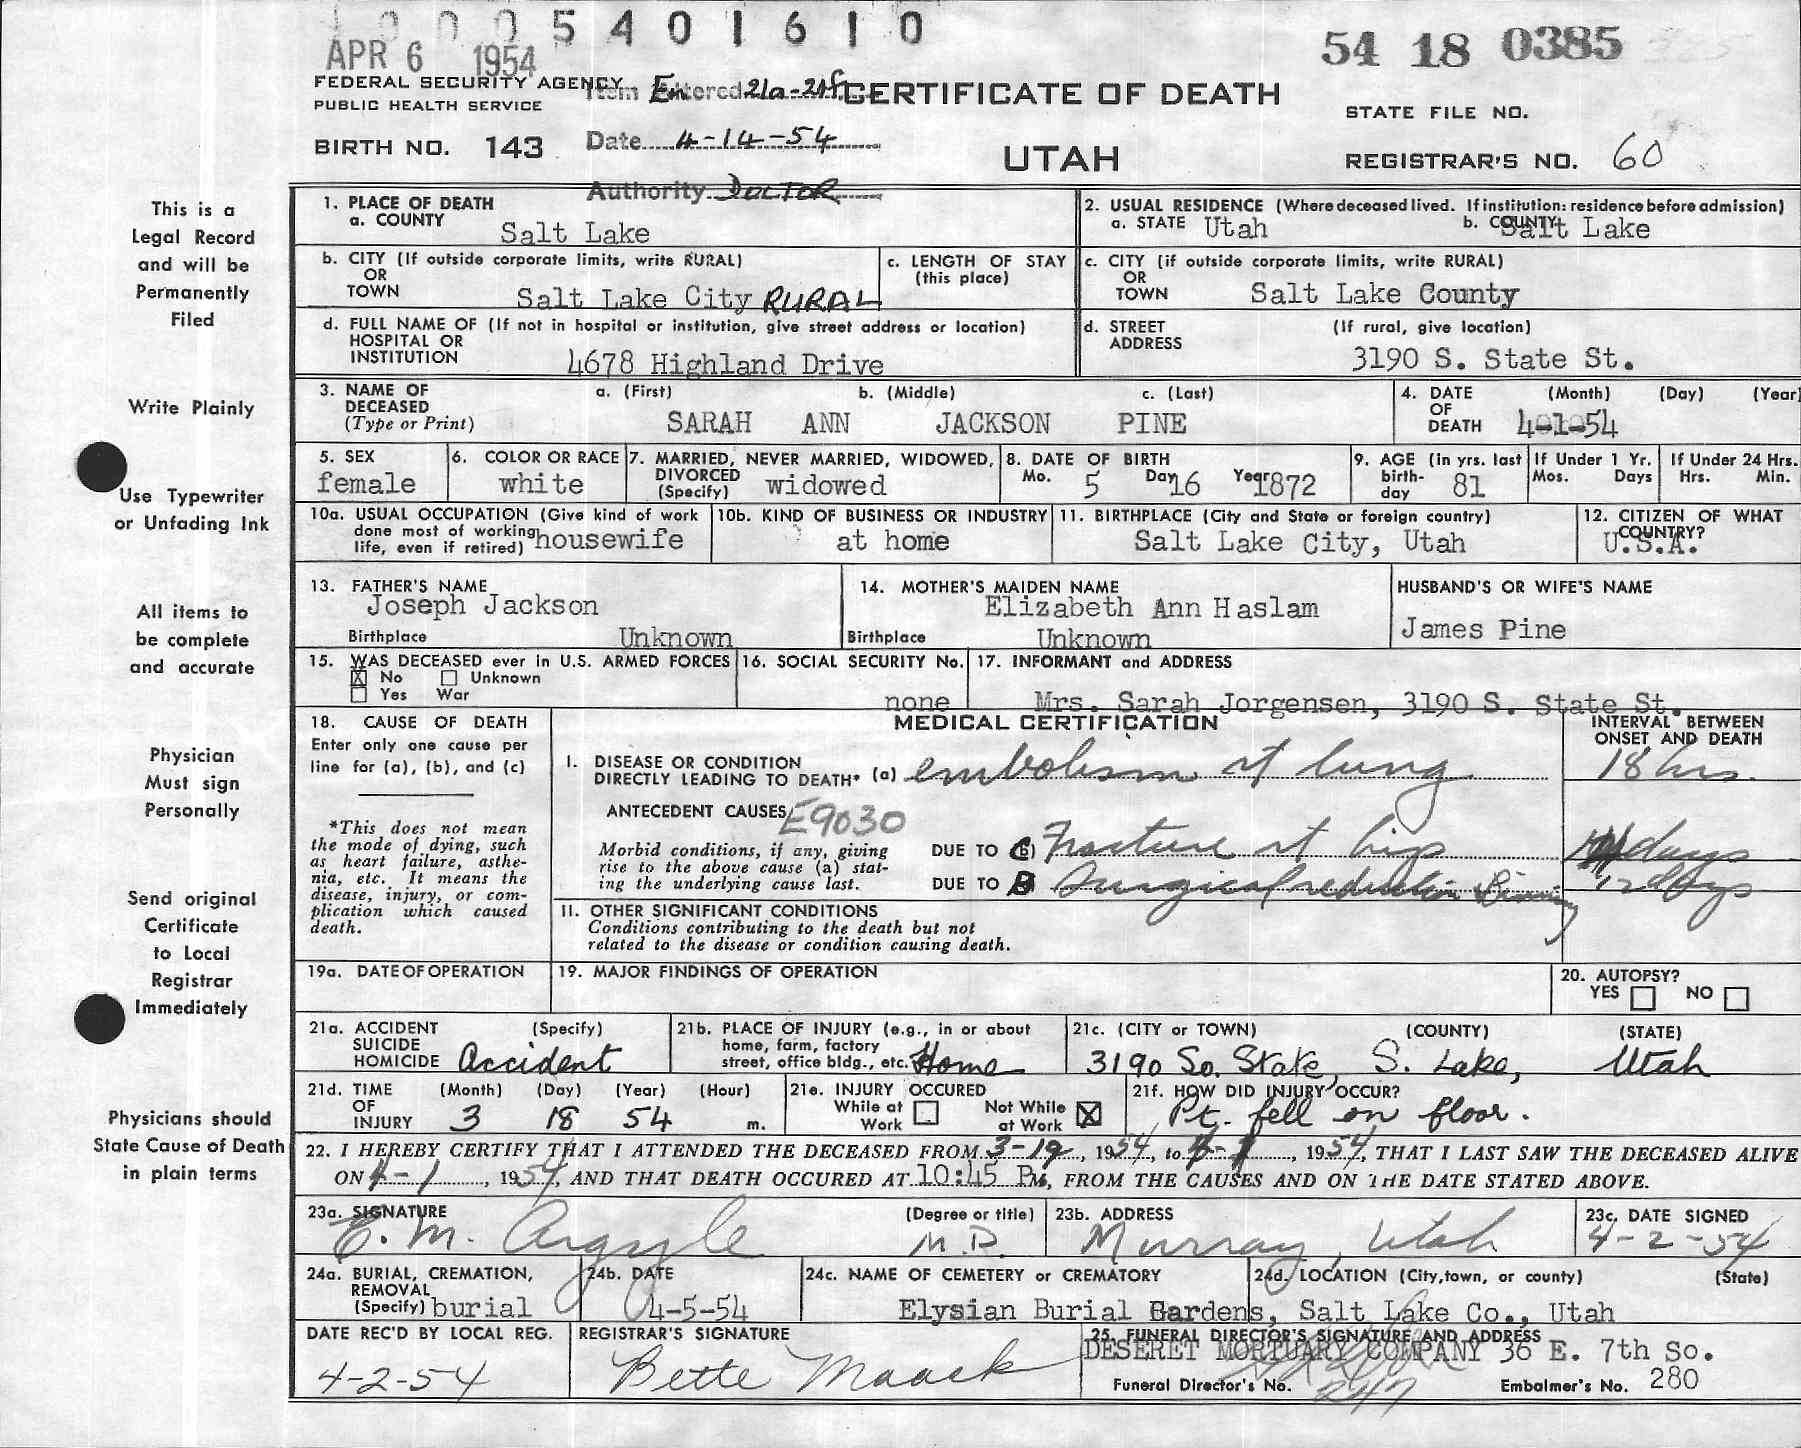 5 4 0 1 6 1 0
APR 6 1954
54 18 0385
FEDERAL SECURITY AGENCY
PUBLIC HEALTH SERVICE
Item Entered 21a-21f
CERTIFICATE OF DEATH
STATE FILE NO.
BIRTH NO. 143
Date 4-14-54
UTAH
REGISTRAR'S NO. 60
Authority DOCTOR
This is a
Legal Record
and will be
Permanently
Filed
Write Plainly
Use Typewriter
or Unfading Ink
All items to
be complete
and accurate
Physician
Must sign
Personally
Send original
Certificate
to Local
Registrar
Immediately
Physicians should
State Cause of Death
in plain terms
1. PLACE OF DEATH
a. COUNTY Salt Lake
2. USUAL RESIDENCE (Where deceased lived. If institution: residence before admission)
a. STATE Utah b. COUNTY Salt Lake
b. CITY (If outside corporate limits, write RURAL)
OR
TOWN Salt Lake City RURAL
c. LENGTH OF STAY
(this place)
c. CITY (if outside corporate limits, write RURAL)
OR
TOWN Salt Lake County
d. FULL NAME OF (If not in hospital or institution, give street address or location)
HOSPITAL OR
INSTITUTION 4678 Highland Drive
d. STREET (If rural, give location)
ADDRESS 3190 S. State St.
3. NAME OF a. (First) b. (Middle) c. (Last)
DECEASED
(Type or Print) SARAH ANN JACKSON PINE
4. DATE (Month) (Day) (Year)
OF
DEATH 4-1-54
5. SEX
female
6. COLOR OR RACE
white
7. MARRIED, NEVER MARRIED, WIDOWED,
DIVORCED
(Specify) widowed
8. DATE OF BIRTH
Mo. 5 Day 16 Year 1872
9. AGE (in yrs. last
birth-
day 81
If Under 1 Yr.
Mos. Days
If Under 24 Hrs.
Hrs. Min.
10a. USUAL OCCUPATION (Give kind of work
done most of working
life, even if retired) housewife
10b. KIND OF BUSINESS OR INDUSTRY
at home
11. BIRTHPLACE (City and State or foreign country)
Salt Lake City, Utah
12. CITIZEN OF WHAT
COUNTRY?
U.S.A.
13. FATHER'S NAME
Joseph Jackson
Birthplace Unknown
14. MOTHER'S MAIDEN NAME
Elizabeth Ann Haslam
Birthplace Unknown
HUSBAND'S OR WIFE'S NAME
James Pine
15. WAS DECEASED ever in U.S. ARMED FORCES
X No Unknown
Yes War
16. SOCIAL SECURITY No.
none
17. INFORMANT and ADDRESS
Mrs. Sarah Jorgensen, 3190 S. State St.
18. CAUSE OF DEATH
Enter only one cause per
line for (a), (b), and (c)
*This does not mean
the mode of dying, such
as heart failure, asthe-
nia, etc. It means the
disease, injury, or com-
plication which caused
death.
MEDICAL CERTIFICATION
INTERVAL BETWEEN
ONSET AND DEATH
I. DISEASE OR CONDITION
DIRECTLY LEADING TO DEATH* (a) embolism of lung 18 hrs.
ANTECEDENT CAUSES E9030
Morbid conditions, if any, giving
rise to the above cause (a) stat-
ing the underlying cause last.
DUE TO Fracture of hip days
DUE TO B Surgical reduction & pinning 12 days
II. OTHER SIGNIFICANT CONDITIONS
Conditions contributing to the death but not
related to the disease or condition causing death.
19a. DATE OF OPERATION
19. MAJOR FINDINGS OF OPERATION
20. AUTOPSY?
YES NO
21a. ACCIDENT (Specify)
SUICIDE
HOMICIDE Accident
21b. PLACE OF INJURY (e.g., in or about
home, farm, factory
street, office bldg., etc. Home
21c. (CITY or TOWN) (COUNTY) (STATE)
3190 So. State, S. Lake, Utah
21d. TIME (Month) (Day) (Year) (Hour)
OF
INJURY 3 18 54 m.
21e. INJURY OCCURED
While at Work
Not While at Work X
21f. HOW DID INJURY OCCUR?
Pt. fell on floor.
22. I HEREBY CERTIFY THAT I ATTENDED THE DECEASED FROM 3-19, 1954, to 4-1, 1954, THAT I LAST SAW THE DECEASED ALIVE
ON 4-1, 1954, AND THAT DEATH OCCURED AT 10:45 PM, FROM THE CAUSES AND ON THE DATE STATED ABOVE.
23a. SIGNATURE (Degree or title)
E. M. Argyle M.D.
23b. ADDRESS
Murray, Utah
23c. DATE SIGNED
4-2-54
24a. BURIAL, CREMATION,
REMOVAL
(Specify) burial
24b. DATE
4-5-54
24c. NAME OF CEMETERY or CREMATORY
Elysian Burial Gardens,
24d. LOCATION (City, town, or county) (State)
Salt Lake Co., Utah
DATE REC'D BY LOCAL REG.
4-2-54
REGISTRAR'S SIGNATURE
Bette Maack
25. FUNERAL DIRECTOR'S SIGNATURE AND ADDRESS
DESERET MORTUARY COMPANY 36 E. 7th So.
Funeral Director's No. 247 Embalmer's No. 280